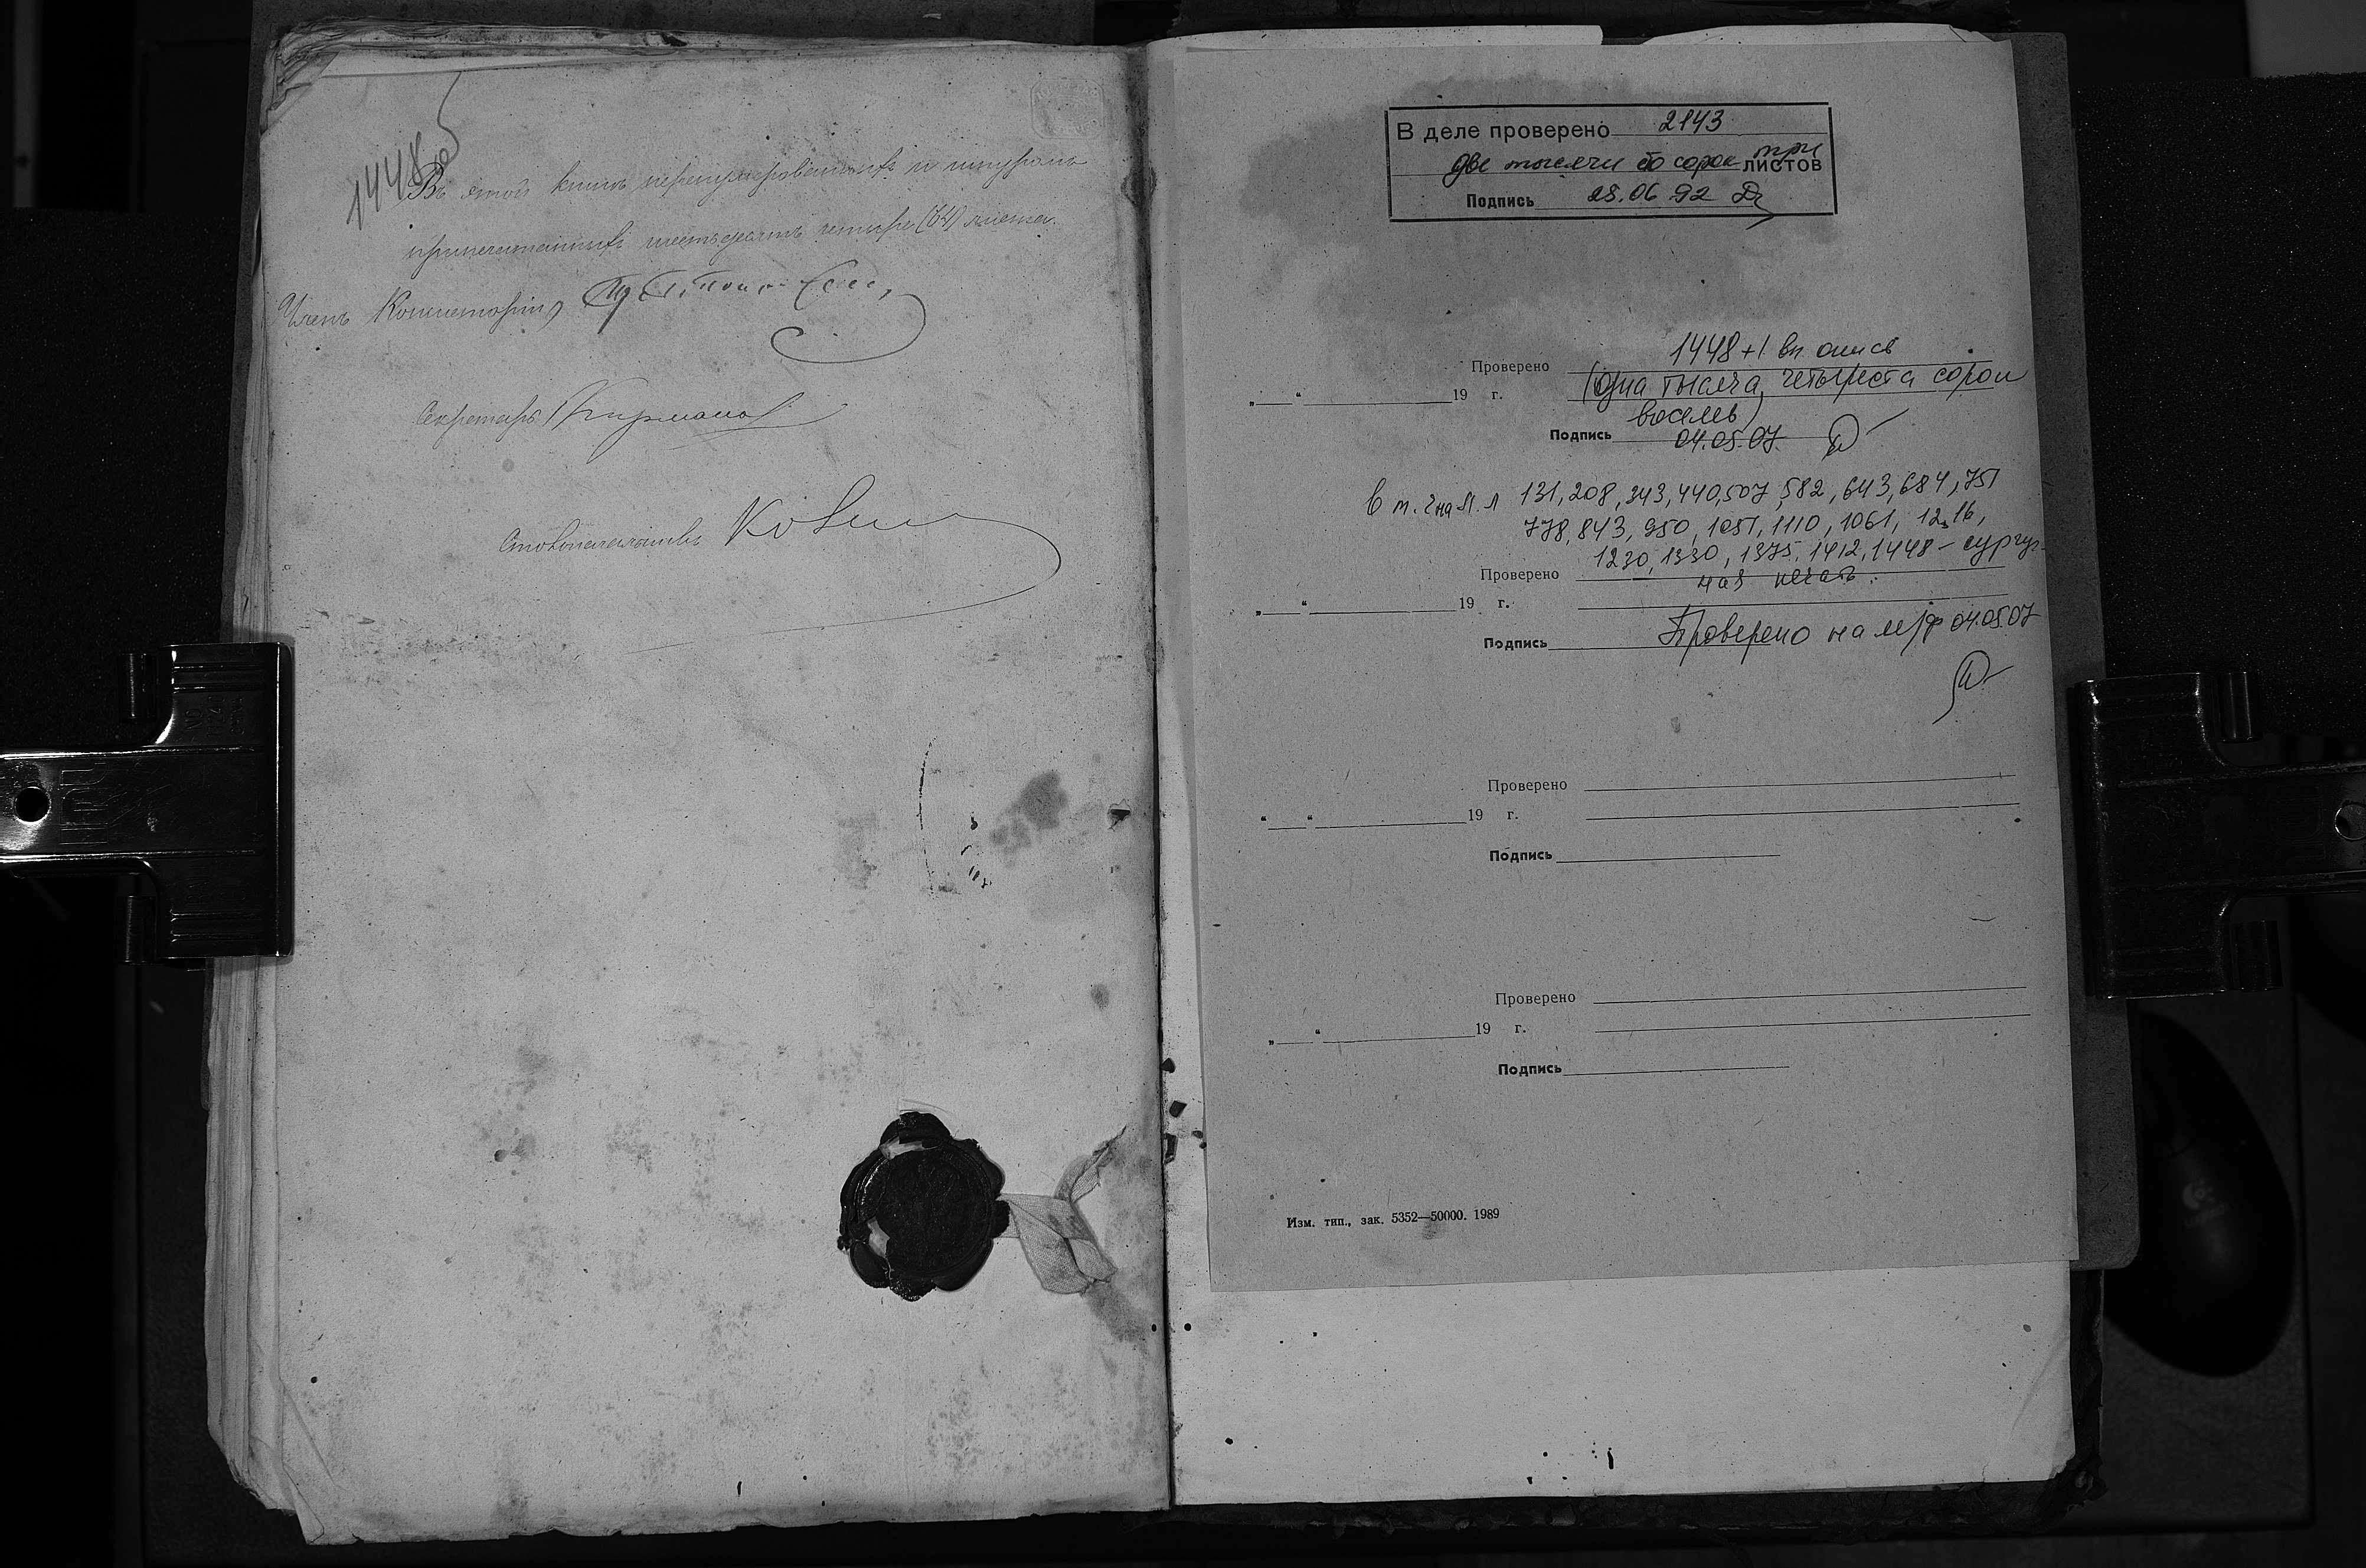 1448
Въ этой книге перенумерованныхъ и шнуромъ
припечатанныхъ шестьдесятъ четыре (64) листа.
Членъ Консисторіи,
Секретарь
Столоначальникъ
В деле проверено 2143
две тысячи сто сорок три листов
Подпись 28.06.92
Проверено 1448 + 1 вн. опись
„ “ 19 г. (одна тысяча, четыреста сорок
восемь)
Подпись 04.05.07
в т. ч на л. л 131, 208, 343, 440, 507, 582, 643, 684, 751
778, 843, 950, 1051, 1110, 1061, 1216,
Проверено 1230, 1330, 1375, 1412, 1448 – сургуч-
ная печать.
„ “ 19 г.
Подпись Проверено на м/ф 04.05.07
Проверено
“ “ 19 г.
Подпись
Проверено
„ “ 19 г.
Подпись
Изм. тип., зак. 5352—50000. 1989